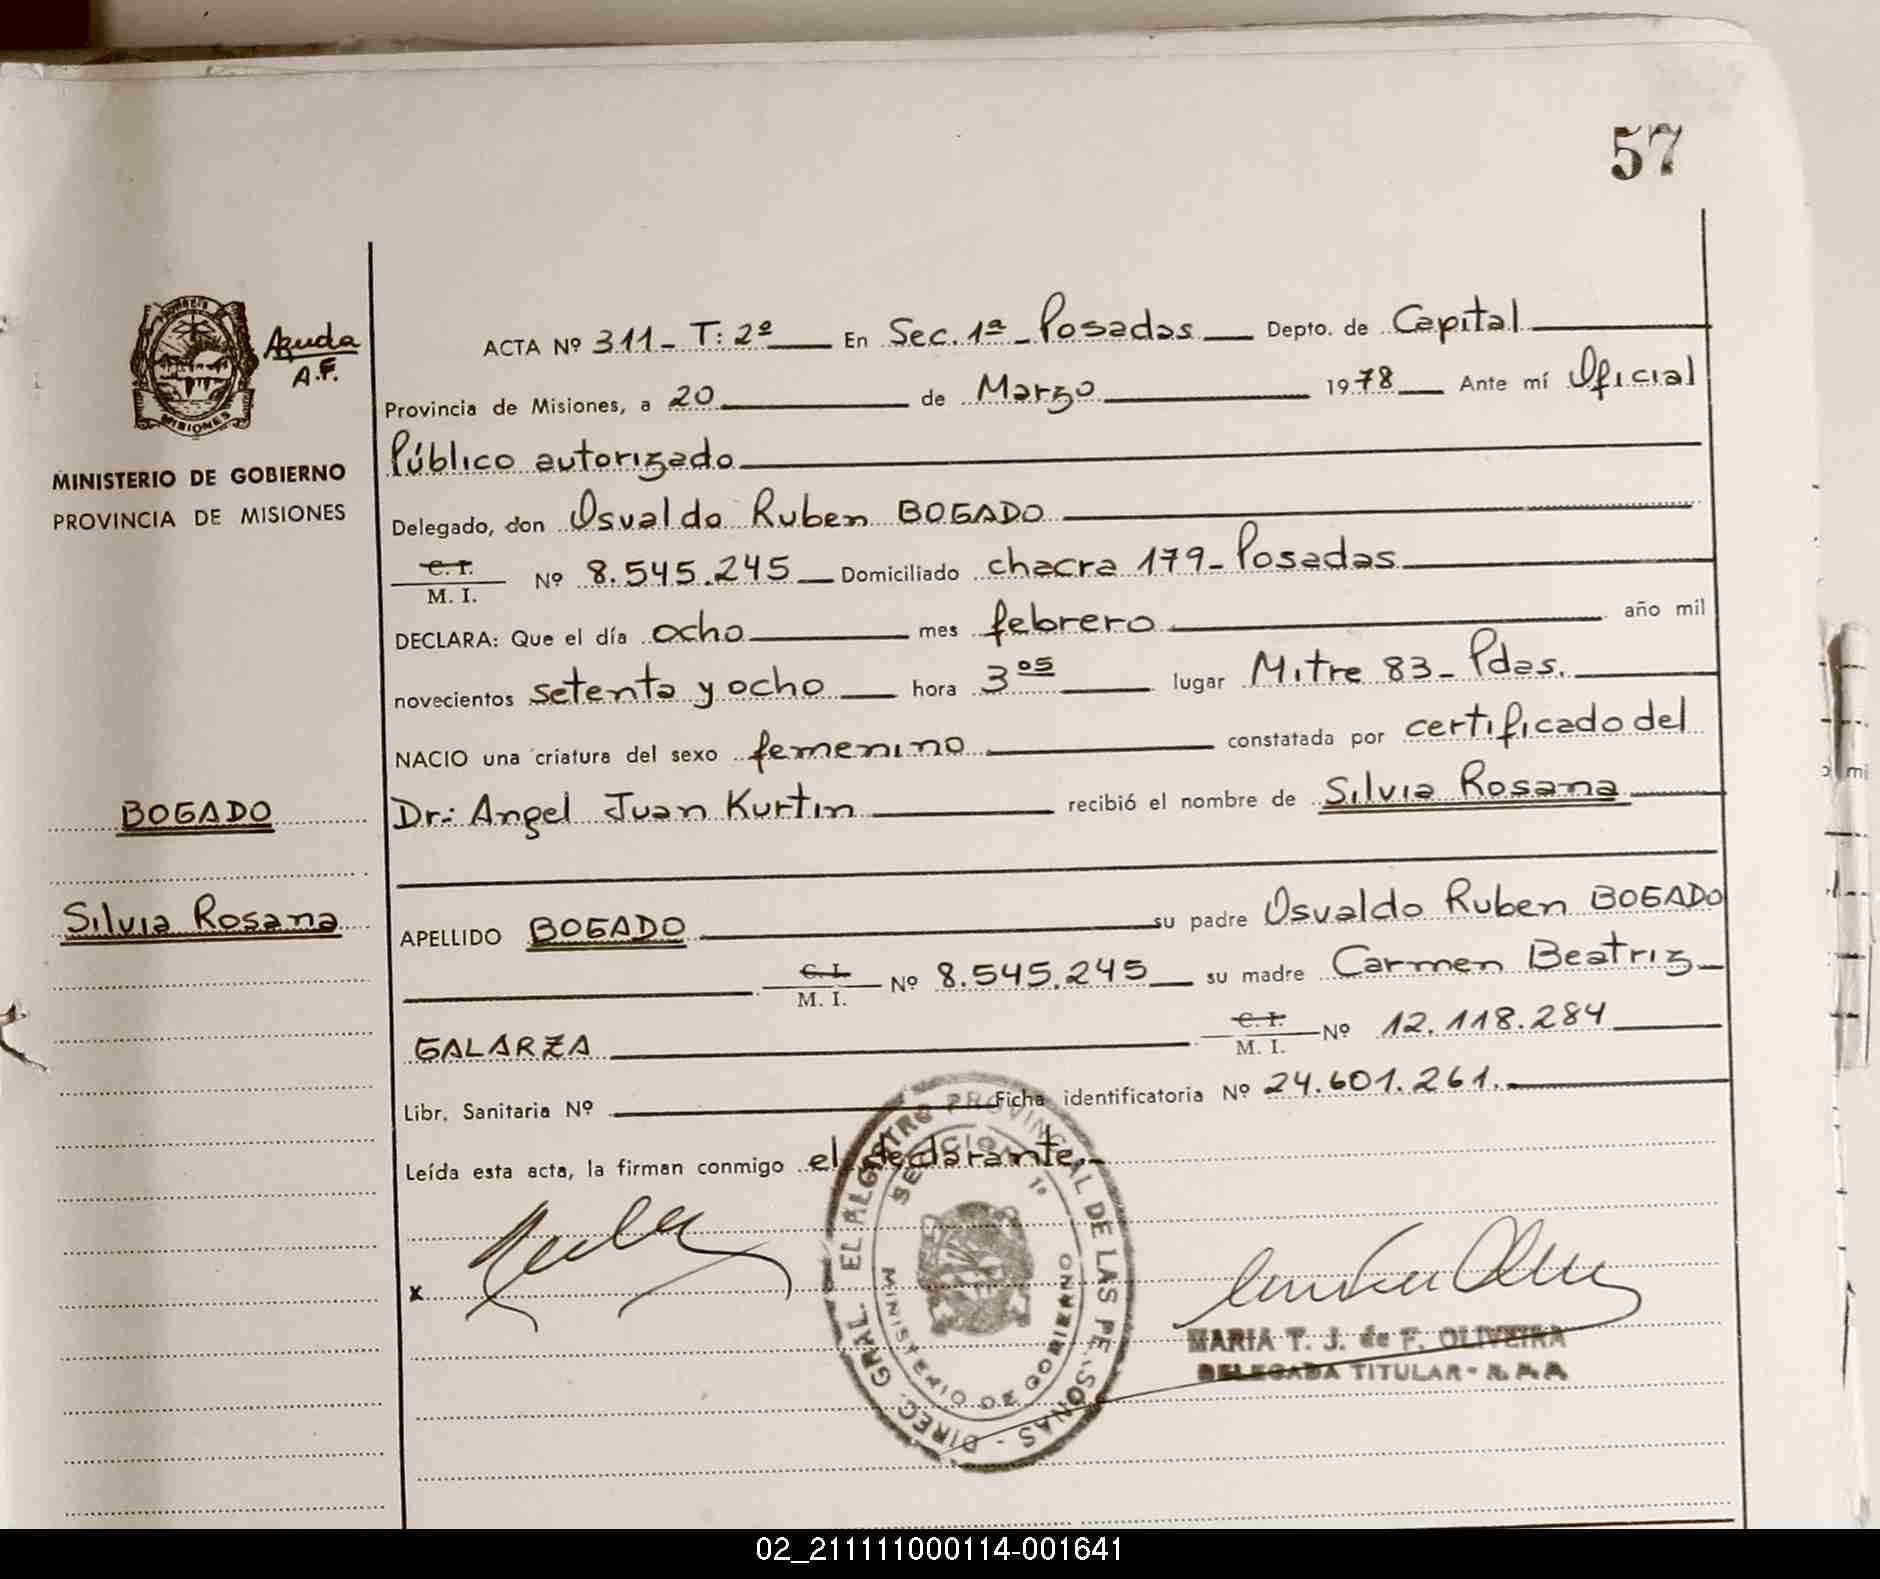 57
Ayuda
A.F.
MISIONES
MINISTERIO DE GOBIERNO
PROVINCIA DE MISIONES
BOGADO
Silvia Rosana
ACTA Nº 311_ T: 2º En Sec. 1ª_ Posadas Depto. de Capital
Provincia de Misiones, a 20 de Marzo 1978 Ante mí Oficial
Público autorizado
Delegado, don Osvaldo Ruben BOGADO
C. I.
M. I. Nº 8.545.245 Domiciliado chacra 179_ Posadas
DECLARA: Que el día ocho mes febrero año mil
novecientos setenta y ocho hora 3 05 lugar Mitre 83_ Pdas.
NACIO una criatura del sexo femenino constatada por certificado del
Dr.: Angel Juan Kurtin recibió el nombre de Silvia Rosana
APELLIDO BOGADO su padre Osvaldo Ruben BOGADO
C. I.
M. I. Nº 8.545.245 su madre Carmen Beatriz
GALARZA C. I.
M. I. Nº 12.118.284
Libr. Sanitaria Nº Ficha identificatoria Nº 24.601.261.
Leída esta acta, la firman conmigo el declarante._
x
DIREC. GRAL. REGISTRO PROVINCIAL DE LAS PERSONAS
SECCION 1ª
MINISTERIO DE GOBIERNO
MARIA T. J. de F. OLIVEIRA
DELEGADA TITULAR - R. P. P.
02_211111000114-001641